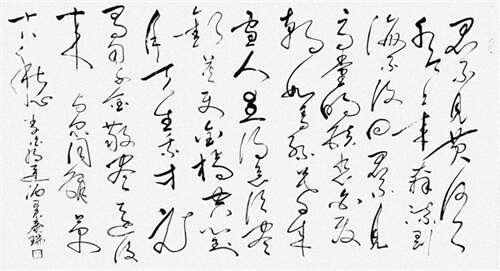 君不见黄河之
水天上来奔流到
海不复回君不见
高堂明镜悲白发
朝如青丝暮成
雪人生得意须尽
欢莫使金樽空对
月天生我才必
有用千金散尽还复
来与尔同销万
古愁